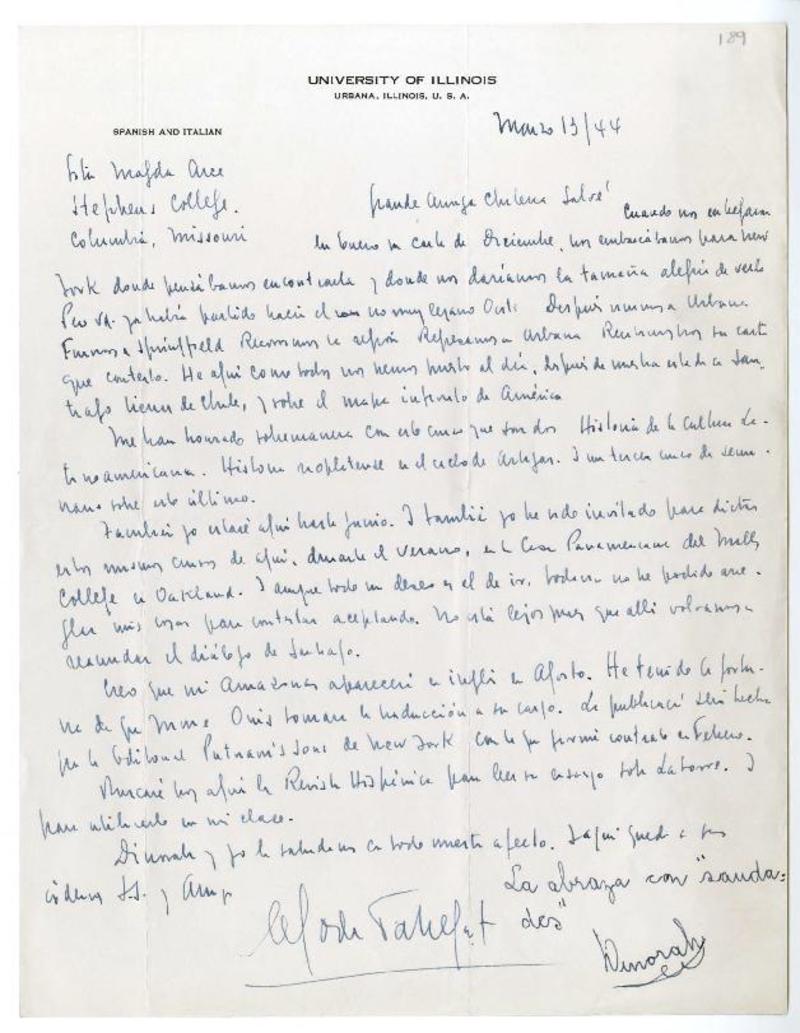 189
UNIVERSITY OF ILLINOIS
URBANA, ILLINOIS, U. S. A.
SPANISH AND ITALIAN
Marzo 13/44
Srta Magda Arce
Stephens College.
Columbia, Missouri
Grande Amiga Chilena Salvé
Cuando nos entregaron
en Enero su carta de Diciembre, nos embarcábamos para New
York donde pensábamos encontrarla y donde nos daríamos la tamaña alegría de verla
Pero Vd. ya había partido hacia el no muy lejano Oeste Después vinimos a Urbana
Fuimos a Springfield Recorrimos la región Regresamos a Urbana su carta
que contesto. He aquí como todos nos hemos puesto al día, después de nuestra estada en San-
tiago de Chile, y sobre el mapa infinito de América
Me han honrado sobremanera con este curso que son dos Historia de la Cultura La-
tinoamericana. Historia rioplatense en el ciclo de Artigas. Y un tercer curso de semi-
nario sobre este último.
También yo estaré aquí hasta Junio. Y también yo he sido invitado para dictar
estos mismos cursos de aquí, durante el verano, en la Casa Panamericana del Mills
College en Oakland. Y aunque todo mi deseo es el de ir, todavía no he podido arre-
glar mis cosas para contestar aceptando. No está lejos pues que allí volvamos a
reanudar el diálogo de Santiago.
Creo que mi Amazonas aparecerá en inglés en Agosto. He tenido la fortu-
na de que Mme Onis tomara la traducción a su cargo. La publicación será hecha
por la Editorial Putnam's Sons de New York con la que firmé contrato en Febrero.
Buscaré hoy aquí la Revista Hispánica para leer su ensayo sobre Latorre. Y
para utilizarlo en mi clase.
Dinorah y yo la saludamos con todo nuestro afecto. Y aquí quedo a sus
órdenes S.S. y Amigo
La abraza con "sauda-
des"
Dinorah